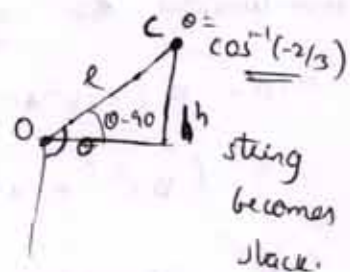 C θ =
cos⁻¹(-2/3)
l
θ-90
h
O
θ
string
becomes
slack.